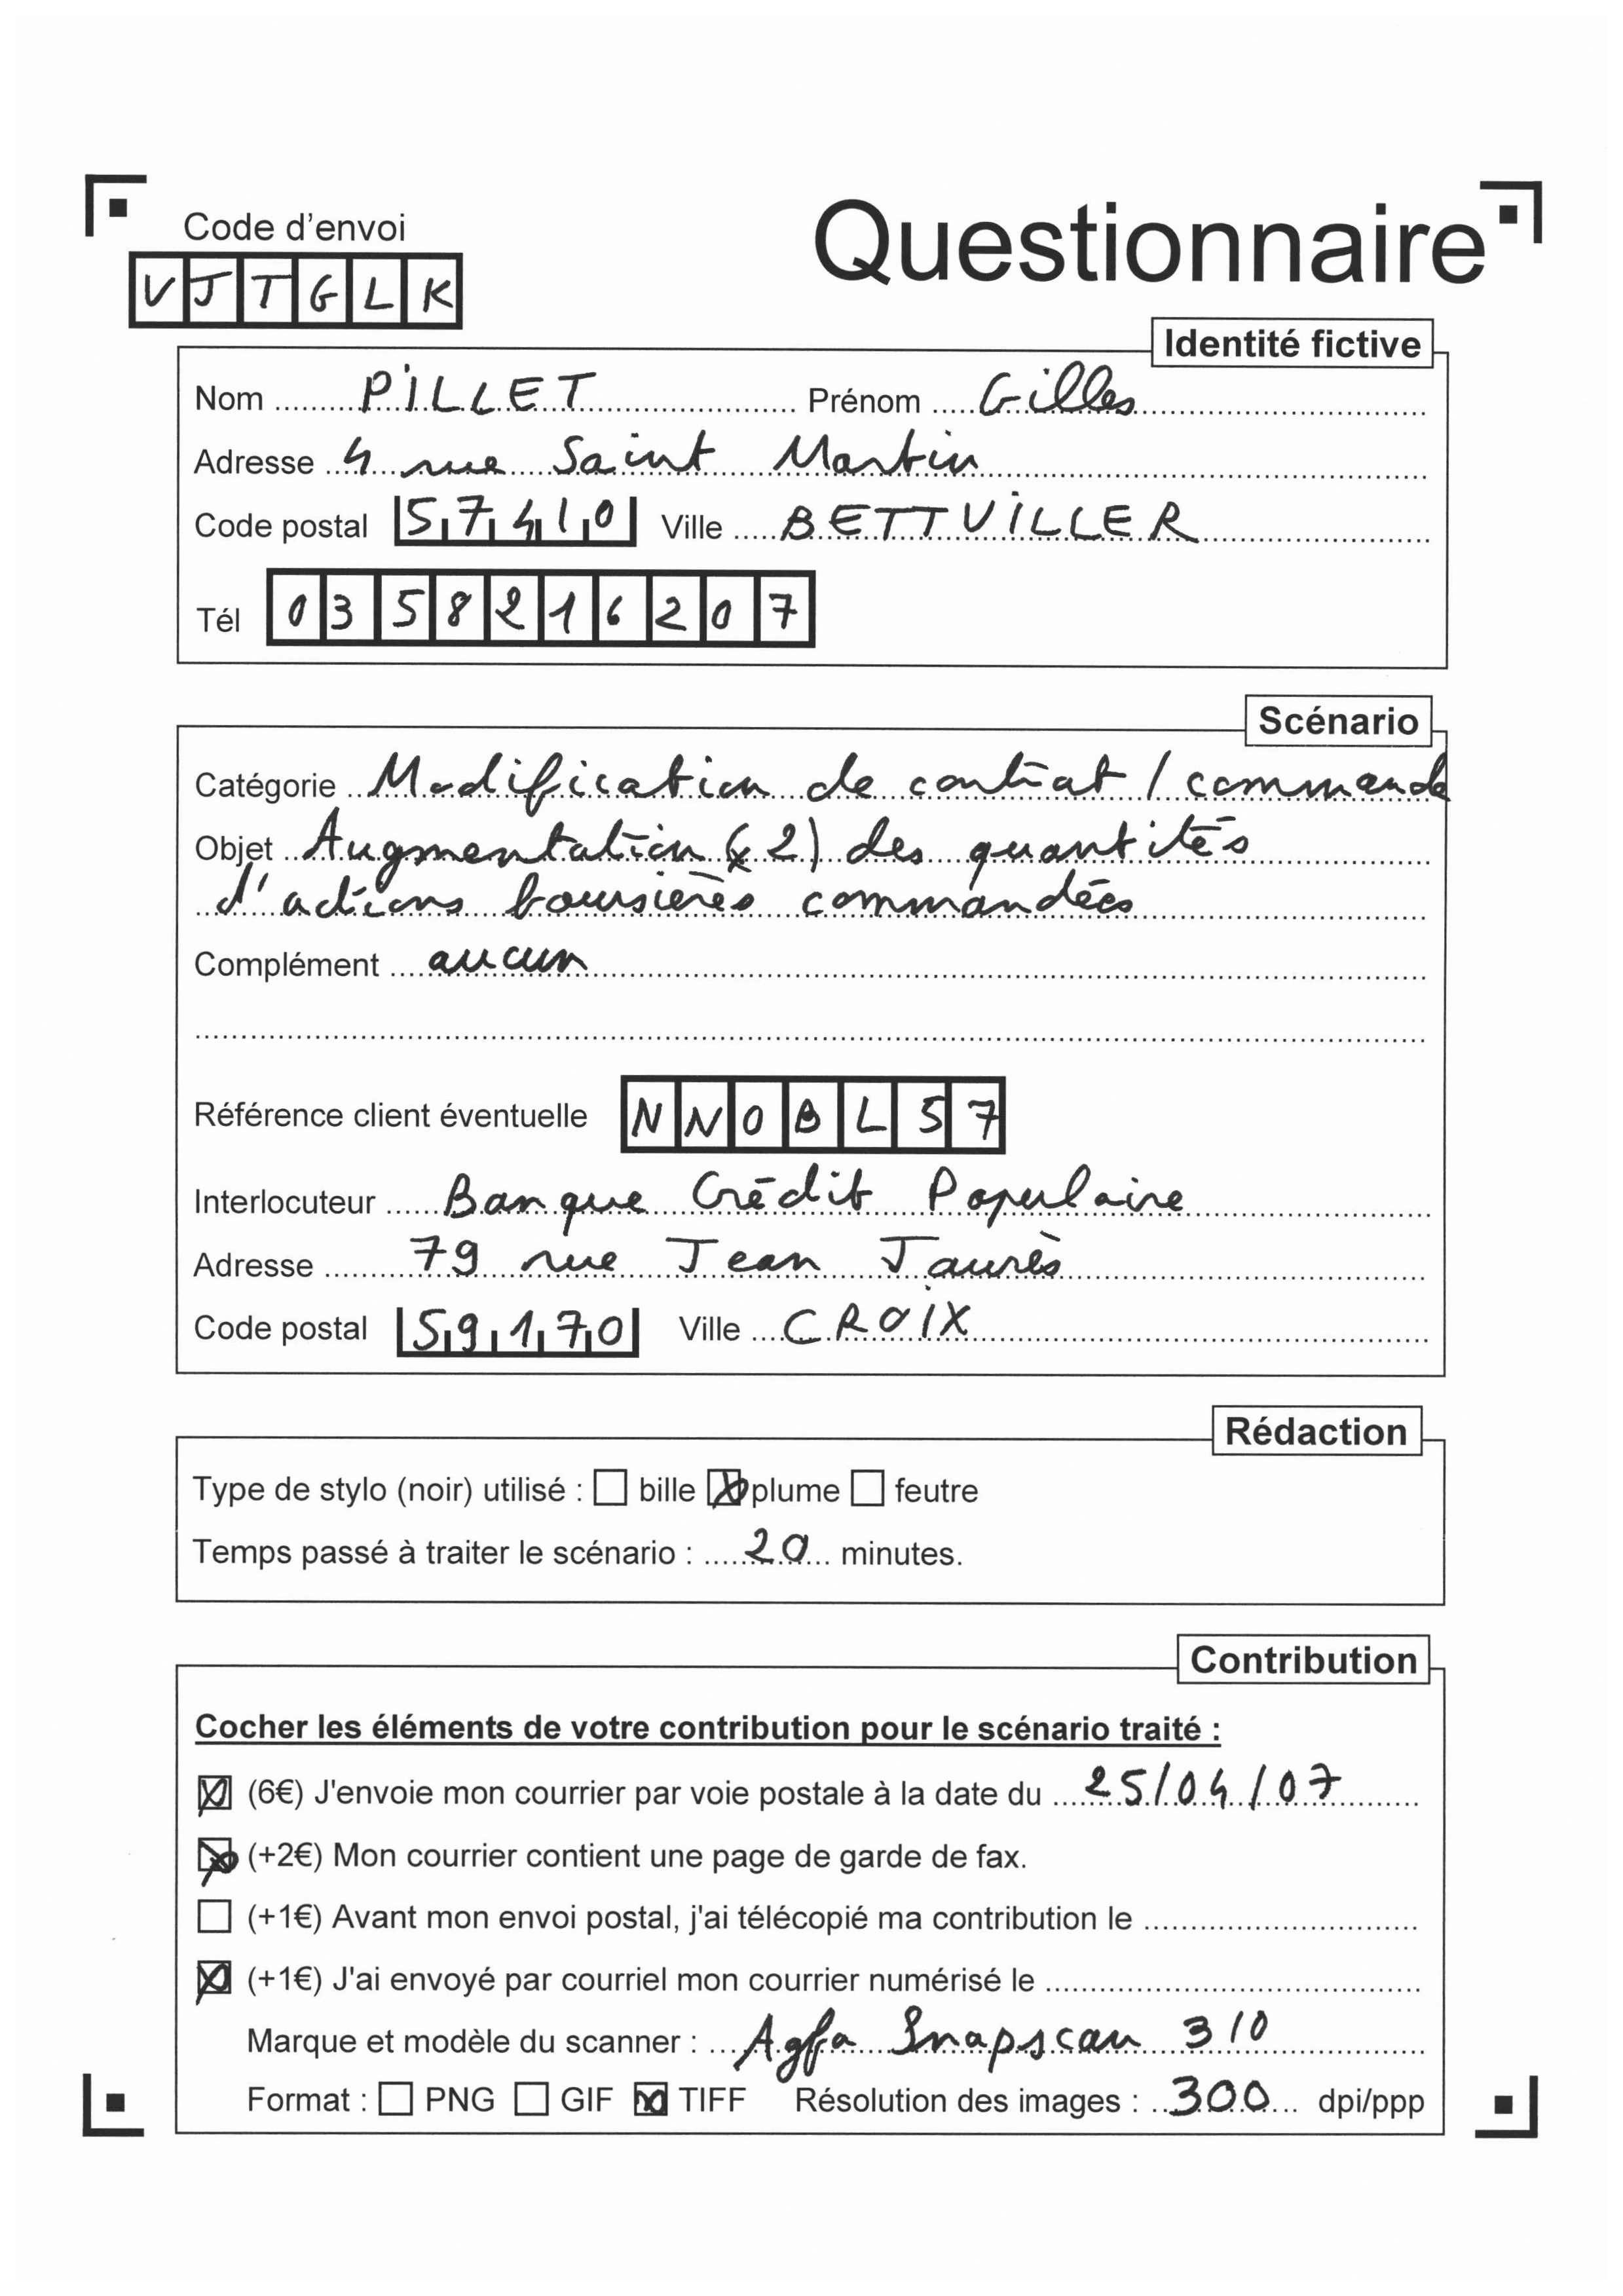 Code d'envoi
Questionnaire
VJTGLK
Identité fictive
Nom PILLET Prénom Gilles
Adresse 4 rue Saint Martin
Code postal 57410 Ville BETTVILLER
Tél 0358216207
Scénario
Catégorie Modification de contrat / commande
Objet Augmentation (x2) des quantités
d'actions boursières commandées
Complément aucun
Référence client éventuelle NNOBL57
Interlocuteur Banque Crédit Populaire
Adresse 79 rue Jean Jaurès
Code postal 59170 Ville CROIX
Rédaction
Type de stylo (noir) utilisé : bille plume feutre
Temps passé à traiter le scénario : 20 minutes.
Contribution
Cocher les éléments de votre contribution pour le scénario traité :
(6€) J'envoie mon courrier par voie postale à la date du 25/04/07
(+2€) Mon courrier contient une page de garde de fax.
(+1€) Avant mon envoi postal, j'ai télécopié ma contribution le
(+1€) J'ai envoyé par courriel mon courrier numérisé le
Marque et modèle du scanner : Agfa Snapscan 310
Format : PNG GIF TIFF Résolution des images : 300 dpi/ppp